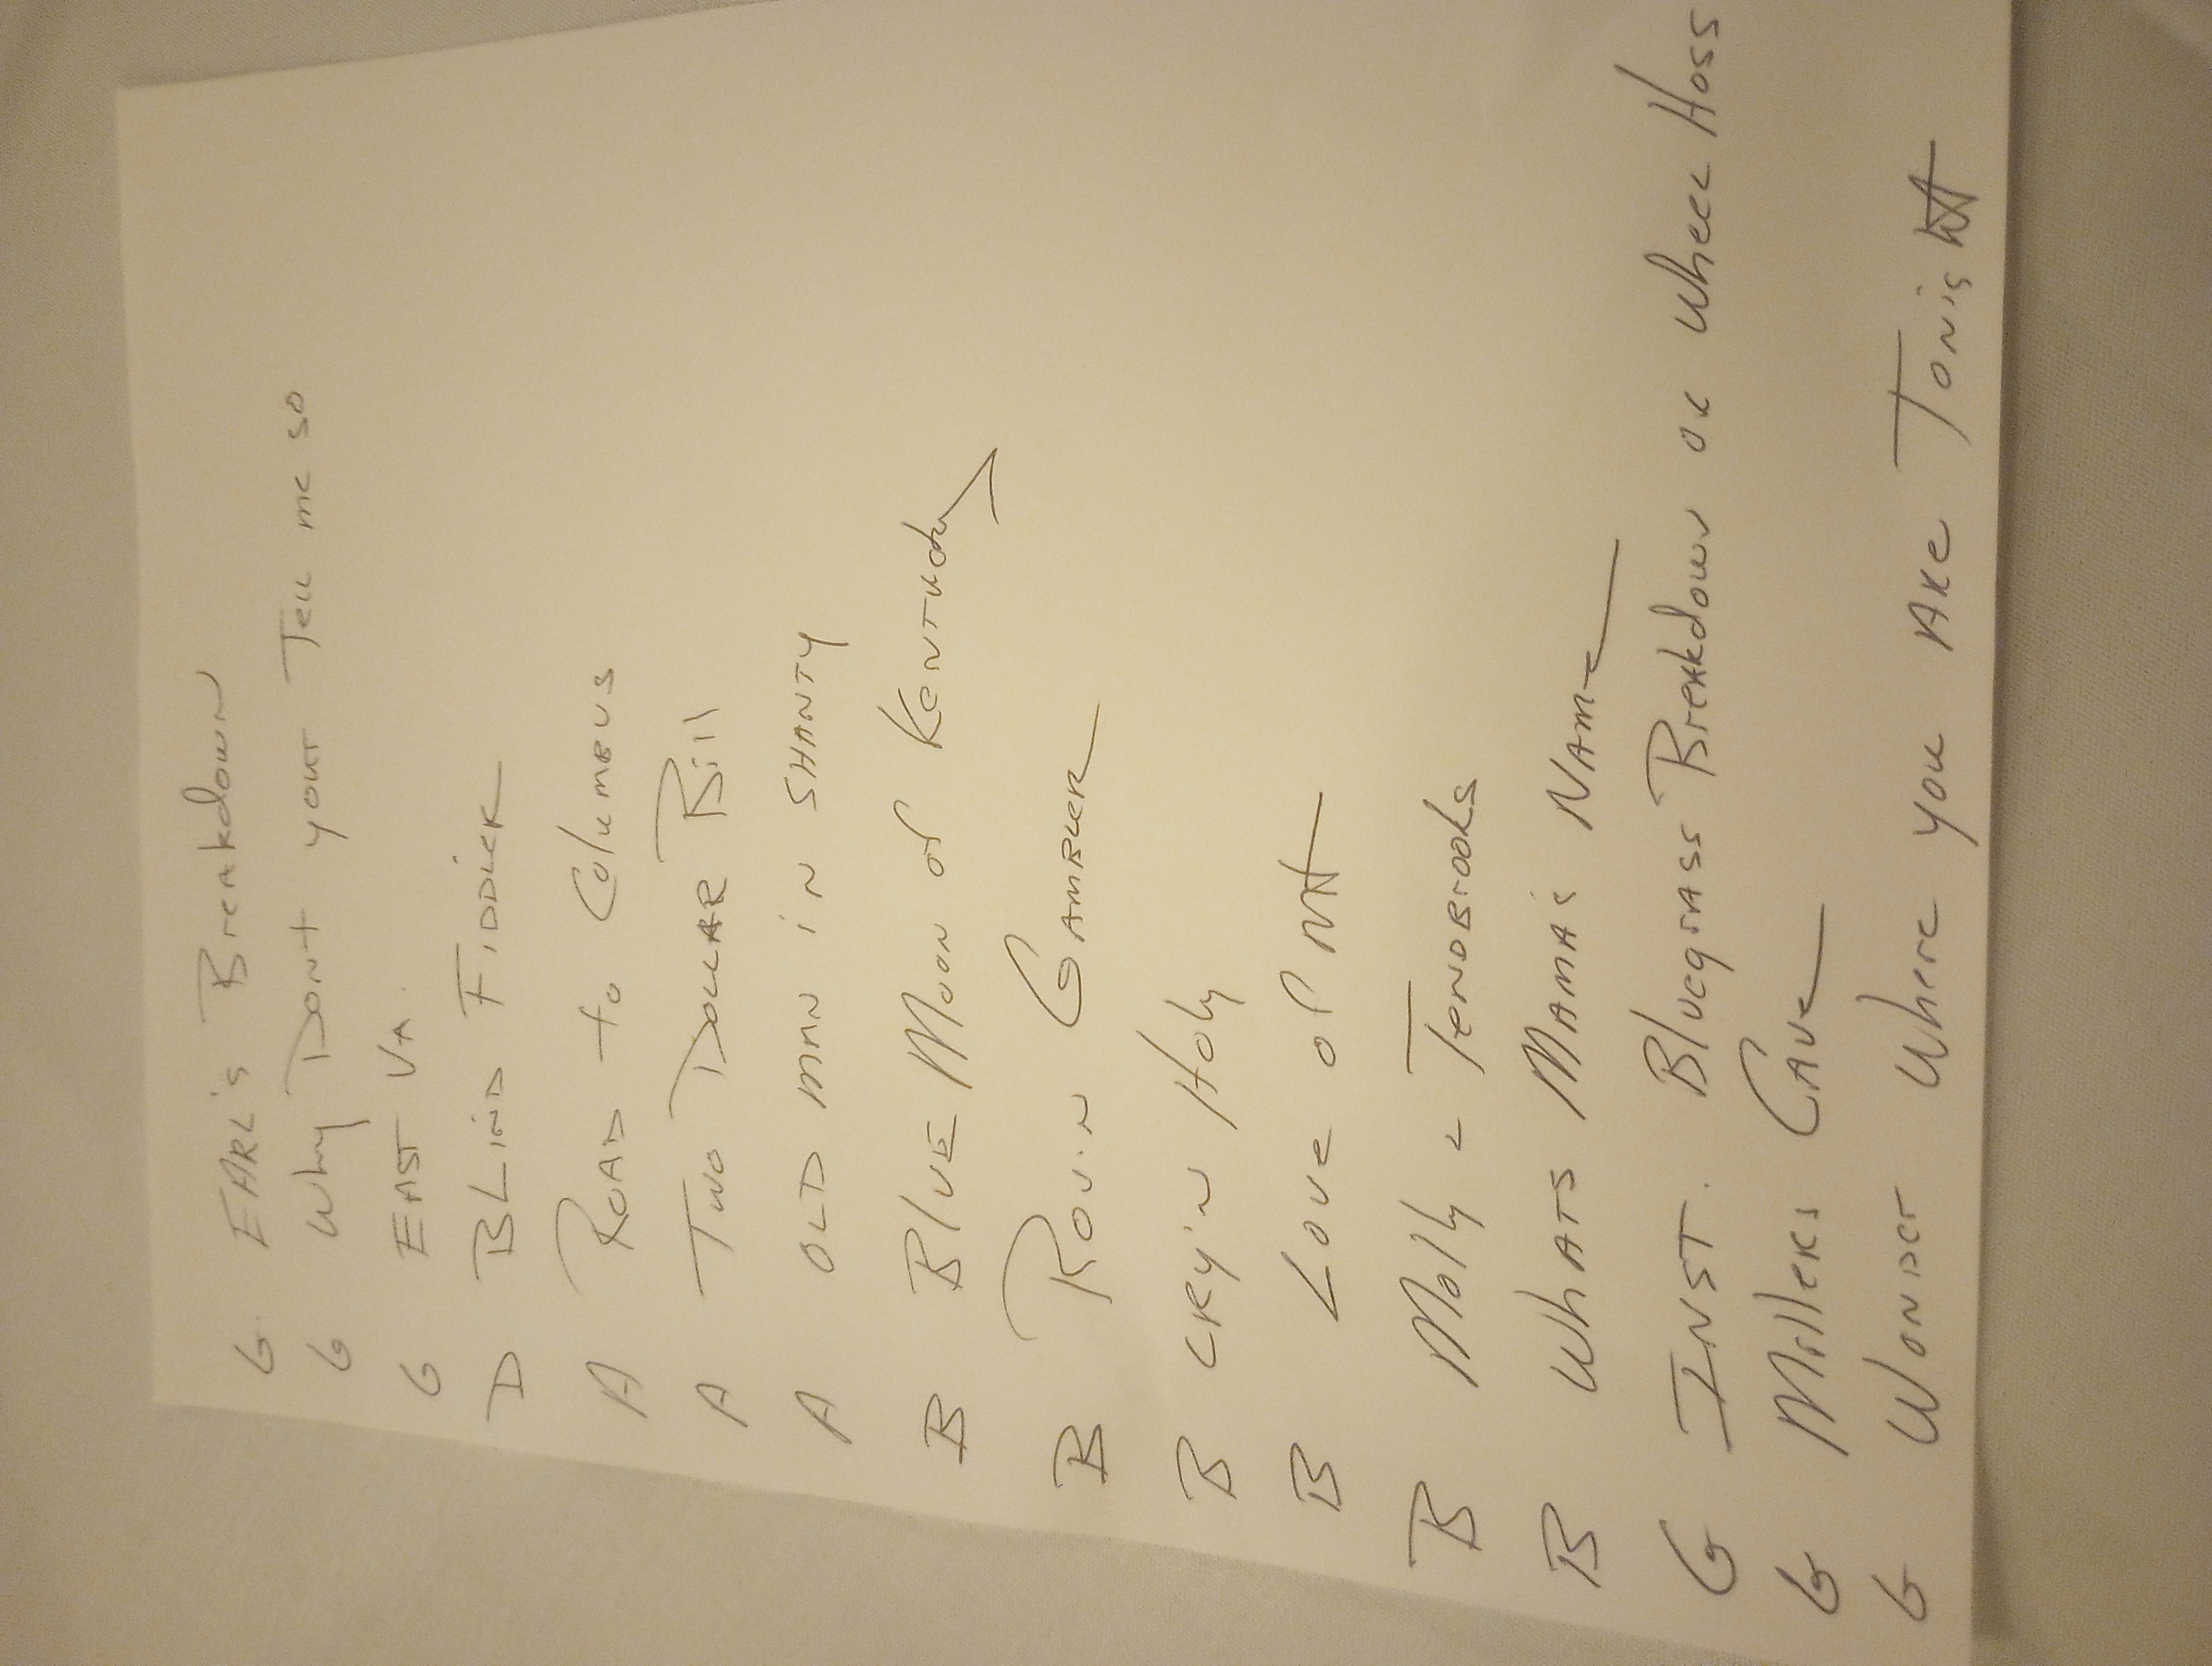 G. EARL's Breakdown
G Why Dont your Tell me so
G EAST VA.
D BLIND FIDDLER
A ROAD to Columbus
A TWO DOLLAR Bill
A OLD MAN iN SHANTY
B BLUE MOON of KENTUCKY
B ROV.N GAMBLER
B CRY'N Holy
B Love of
B Molly & TENDBROOKS
B WhATS MAMA'S NAME
G INST. Bluegrass Breakdown or Wheel Hoss
G Millers CAVE
G WONDER Where you Are Tonight